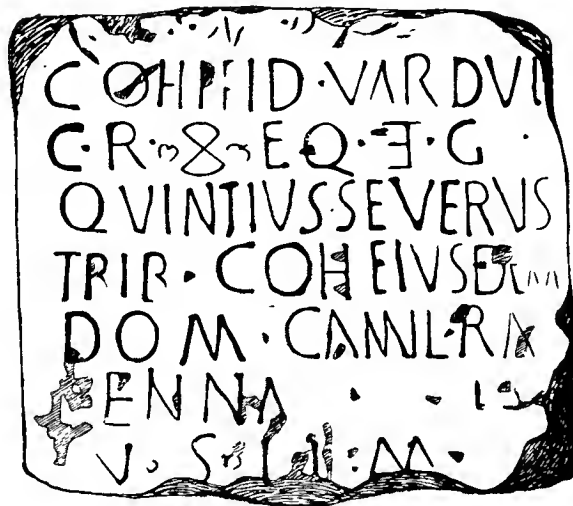 COHPFID·VARDVI
C·R·∞·EQ·Ǝ·G·
QVINTIVS·SEVERVS
TRIB·COH EIVSD
DOM·CAMIL·RA
ENNA
V·S·L·M·